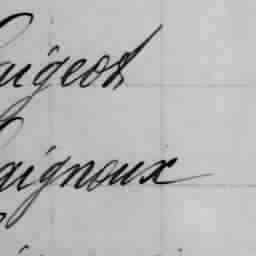 aigeot
aignoux